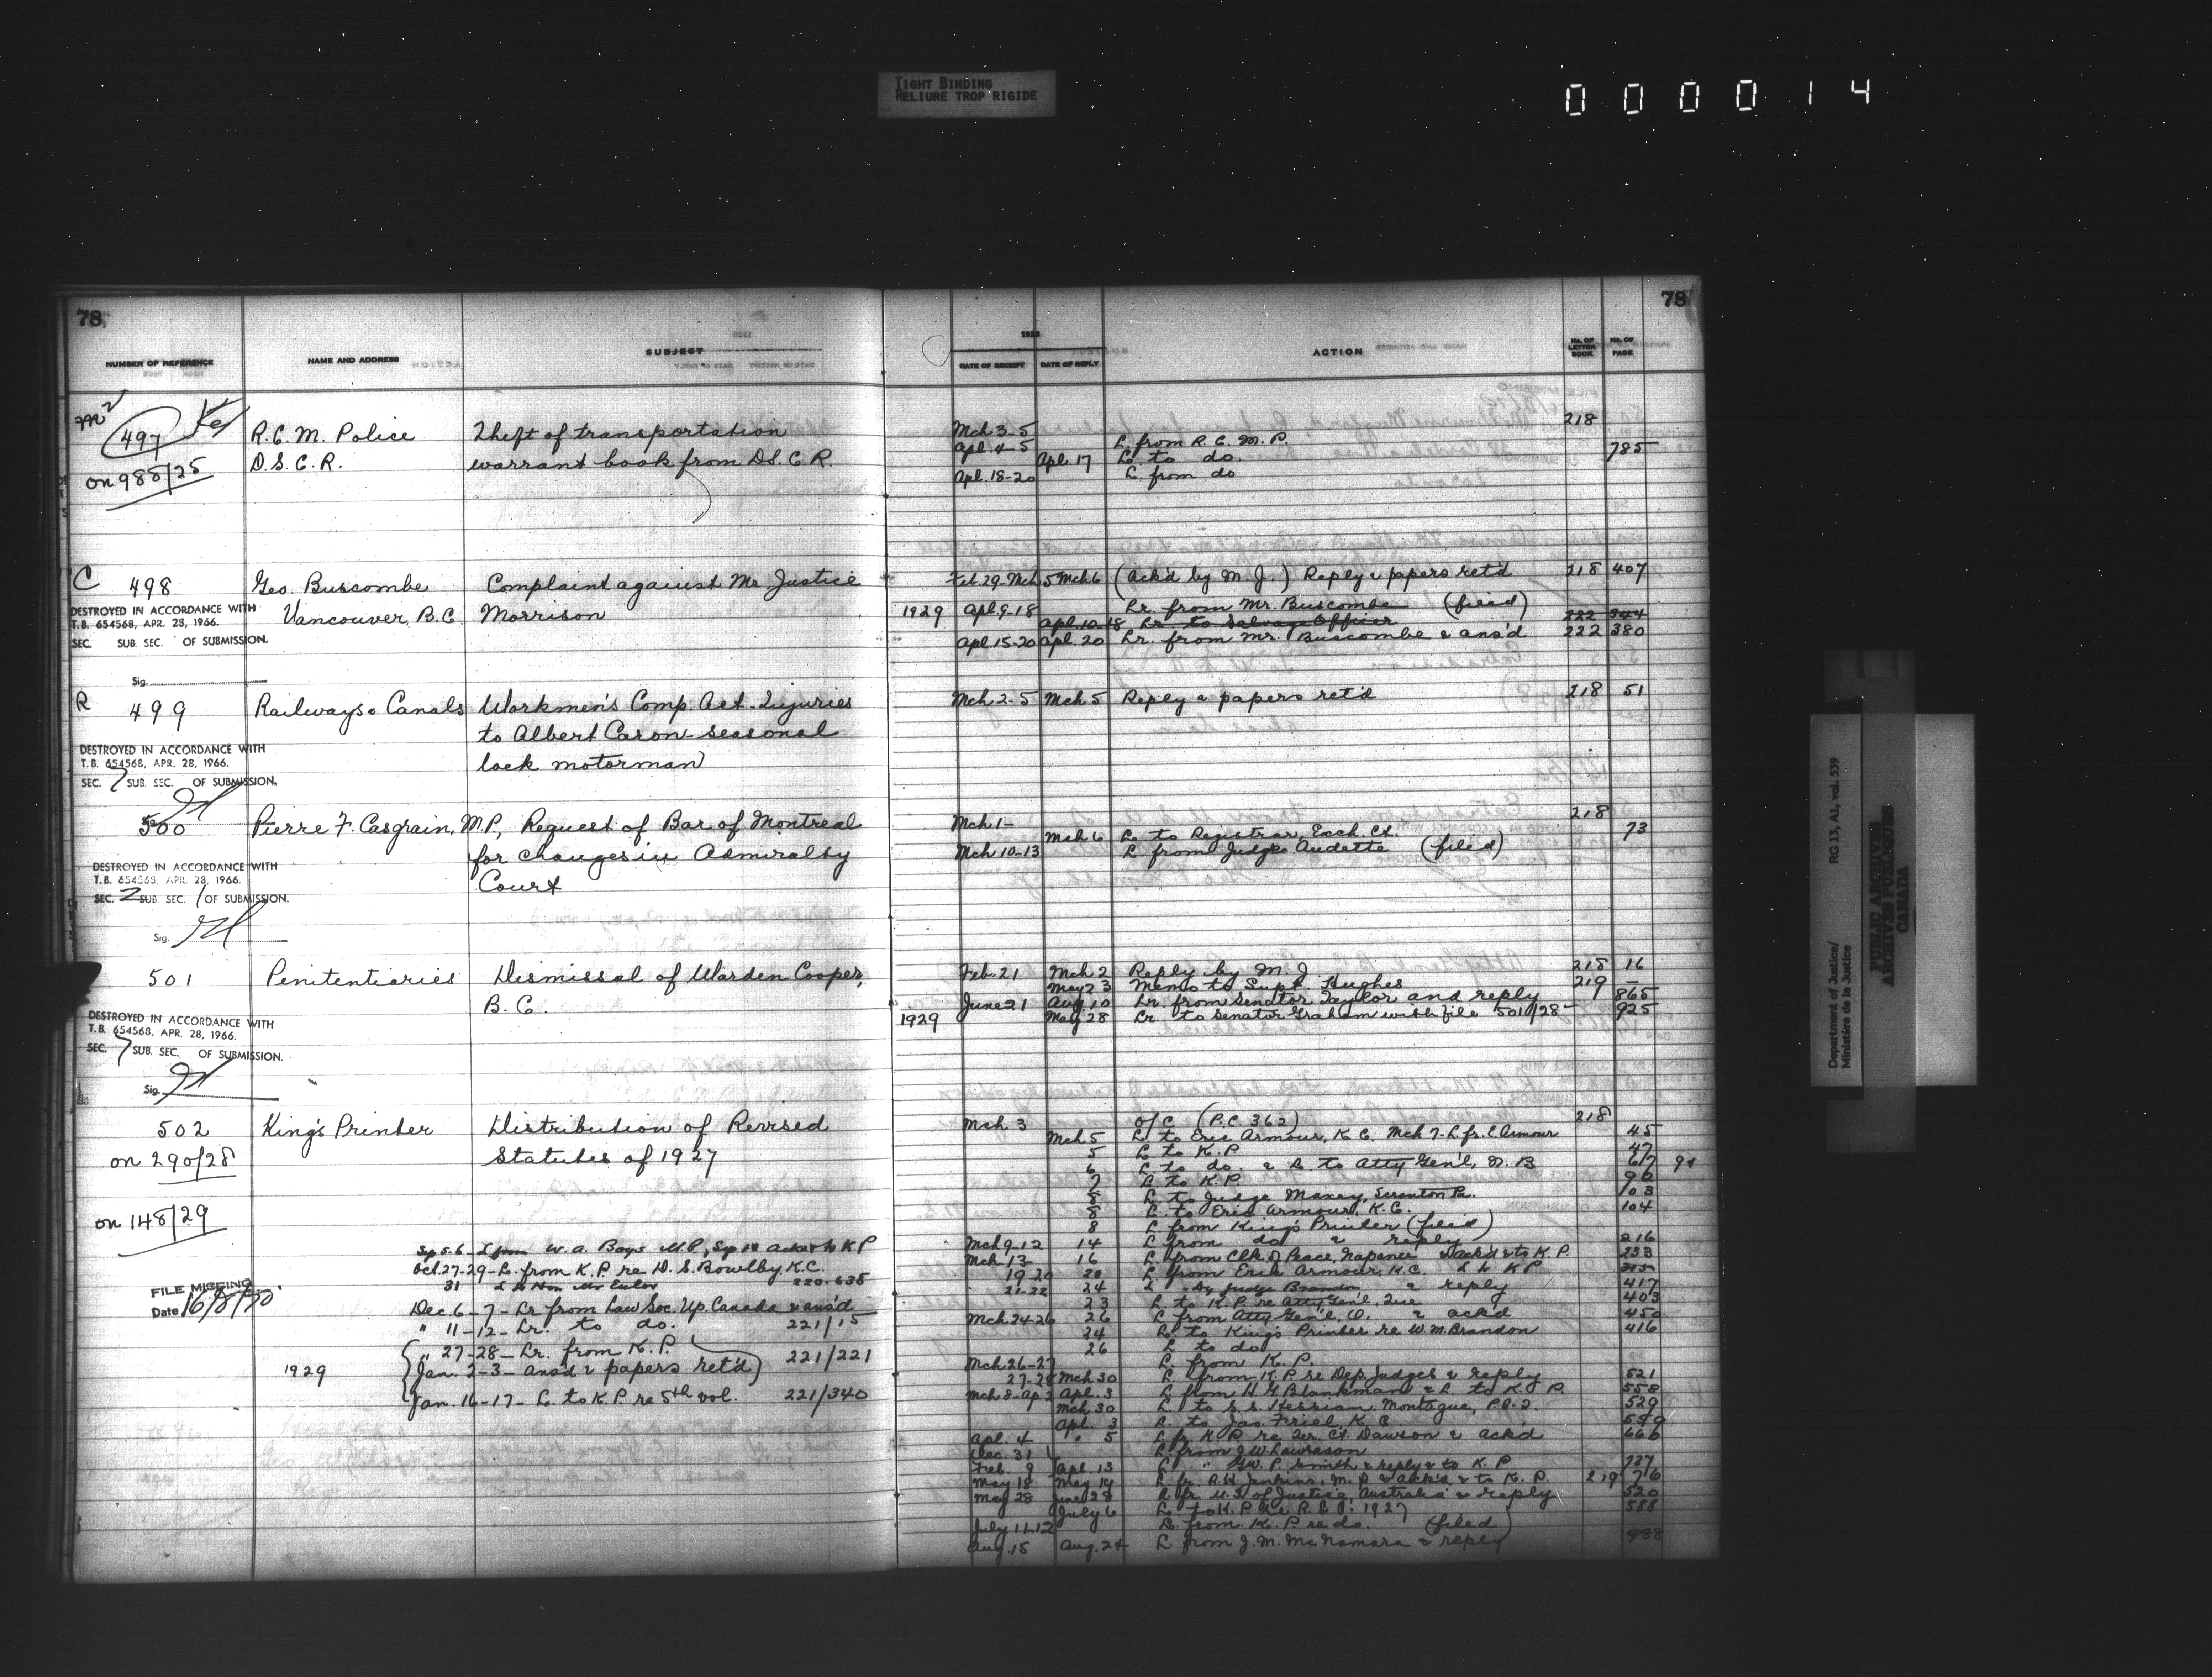 TIGHT BINDING
RELIURE TROP RIGIDE
000014
78
NUMBER OF REFERENCE
NAME AND ADDRESS
SUBJECT
497
on 988/25
R.C.M. Police
D.S.C.R.
Theft of transportation
warrant book from D.S.C.R.
C 498
Geo. Buscombe
Vancouver, B.C.
Complaint against Mr Justice
Morrison
DESTROYED IN ACCORDANCE WITH
T.B. 654568, APR. 28, 1966.
SEC. SUB. SEC. OF SUBMISSION.
Sig.
R 499
Railways & Canals
Workmen's Comp. Act. Injuries
to Albert Caron - seasonal
lock motorman
DESTROYED IN ACCORDANCE WITH
T.B. 654568, APR. 28, 1966.
SEC. 7 SUB. SEC. OF SUBMISSION.
500
Pierre F. Casgrain, M.P.,
Request of Bar of Montreal
for changes in Admiralty
Court
DESTROYED IN ACCORDANCE WITH
T.B. 654568, APR. 28, 1966.
SEC. 2 SUB SEC. 1 OF SUBMISSION.
Sig.
501
Penitentiaries
Dismissal of Warden Cooper,
B.C.
DESTROYED IN ACCORDANCE WITH
T.B. 654568, APR. 28, 1966.
SEC. 7 SUB. SEC. OF SUBMISSION.
Sig.
502
on 290/28
on 148/29
King's Printer
Distribution of Revised
Statutes of 1927
FILE MISSING
Date 16/8/70
Sep 5-6 - L from W.A. Boys M.P., Sep 10 ackd & to KP
Oct. 27-29 - L. from K.P. re D.S. Bowlby, K.C.
31 L to Hon Mr Euler 220-635
Dec. 6-7 - Lr from Law Soc. Up. Canada & ans'd
" 11-12 - Lr. to do. 221/15
" 27-28 - Lr. from K.P.
1929 Jan. 2-3 - ans'd & papers ret'd 221/221
Jan. 16-17 - L. to K.P. re 5th vol. 221/340
78
1928
DATE OF RECEIPT
DATE OF REPLY
ACTION
No. OF LETTER BOOK
No. OF PAGE
Mch 3-5 218
Apl. 4-5 L. from R.C.M.P.
Apl. 17 L. to do. 785
Apl. 18-20 L. from do
Feb. 29-Mch 5 Mch 6 (Ack'd by M.J.) Reply & papers ret'd 218 407
1929 Apl. 9-18 Lr. from Mr. Buscombe (filed)
Apl. 10-18 Lr. to Salvage Officer 222 344
Apl. 15-20 Apl. 20 Lr. from Mr. Buscombe & ans'd 222 380
Mch 2-5 Mch 5 Reply & papers ret'd 218 51
Mch 1- 218
Mch 6 L. to Registrar, Exch. Ct. 73
Mch 10-13 L. from Judge Audette (filed)
Feb. 21 Mch 2 Reply by M.J. 218 16
May 23 Memo to Supt. Hughes 219 -
June 21 Aug. 10 Lr. from Senator Taylor and reply 865
1929 May 28 Lr. to Senator Graham with file 501/28 - 925
Mch 3 O/C (P.C. 362) 218
Mch 5 L. to Eric Armour, K.C. Mch 7- L. fr. E. Armour 45
5 L to K.P 47
6 L to do. & L to Atty Gen'l, N.B 67 91
7 L to K.P. 96
8 L to Judge Maxey, Scranton Pa. 103
8 L. to Eric Armour, K.C. 104
8 L from King's Printer (filed)
Mch 9-12 14 L from do & reply 216
Mch 13- 16 L. from Clk of Peace, Napanee & ack'd & to K.P. 233
19-20 20 L from Eric Armour, K.C. L to KP
21-22 24 L " Dy Judge & reply 417
23 L to K.P. re Atty Gen'l, Que 403
Mch 24-26 26 L from Atty Gen'l, O. & ack'd 450
24 L. to King's Printer re W.M. Brandon 416
26 L to do
Mch 26-27 L. from K.P.
27-28 Mch 30 L. from K.P. re Dep. Judges & reply 521
Mch 8-Ap 2 Apl. 3 L from H.G. Blankman & L. to K.P. 558
Mch 30 L to S.S. Hessian, Montague, P.E.I. 529
Apl. 3 L. to Jas. Friel, K.C.
Apl. 4 " 5 L fr. K.P. re Ter. Ct. Dawson & ack'd 666
Dec. 31 L. from J.W. Lawrason
Feb. 9 Apl. 13 L " G.W.P. Smith & reply & to K.P 737
May 18 May 19 L. fr. R.H. Jenkins, M.P. & ack'd & to K.P. 219 76
May 28 June 28 L. fr. M. of Justice, Australia & reply 520
July 6 L. to K.P. re R.S. 1927 588
July 11-12 L. from K.P. re do. (filed)
Aug. 15 Aug. 24 L. from J.M. McNamara & reply 988
Department of Justice/
Ministère de la Justice
RG 13, A1, vol. 539
PUBLIC ARCHIVES
ARCHIVES PUBLIQUES
CANADA